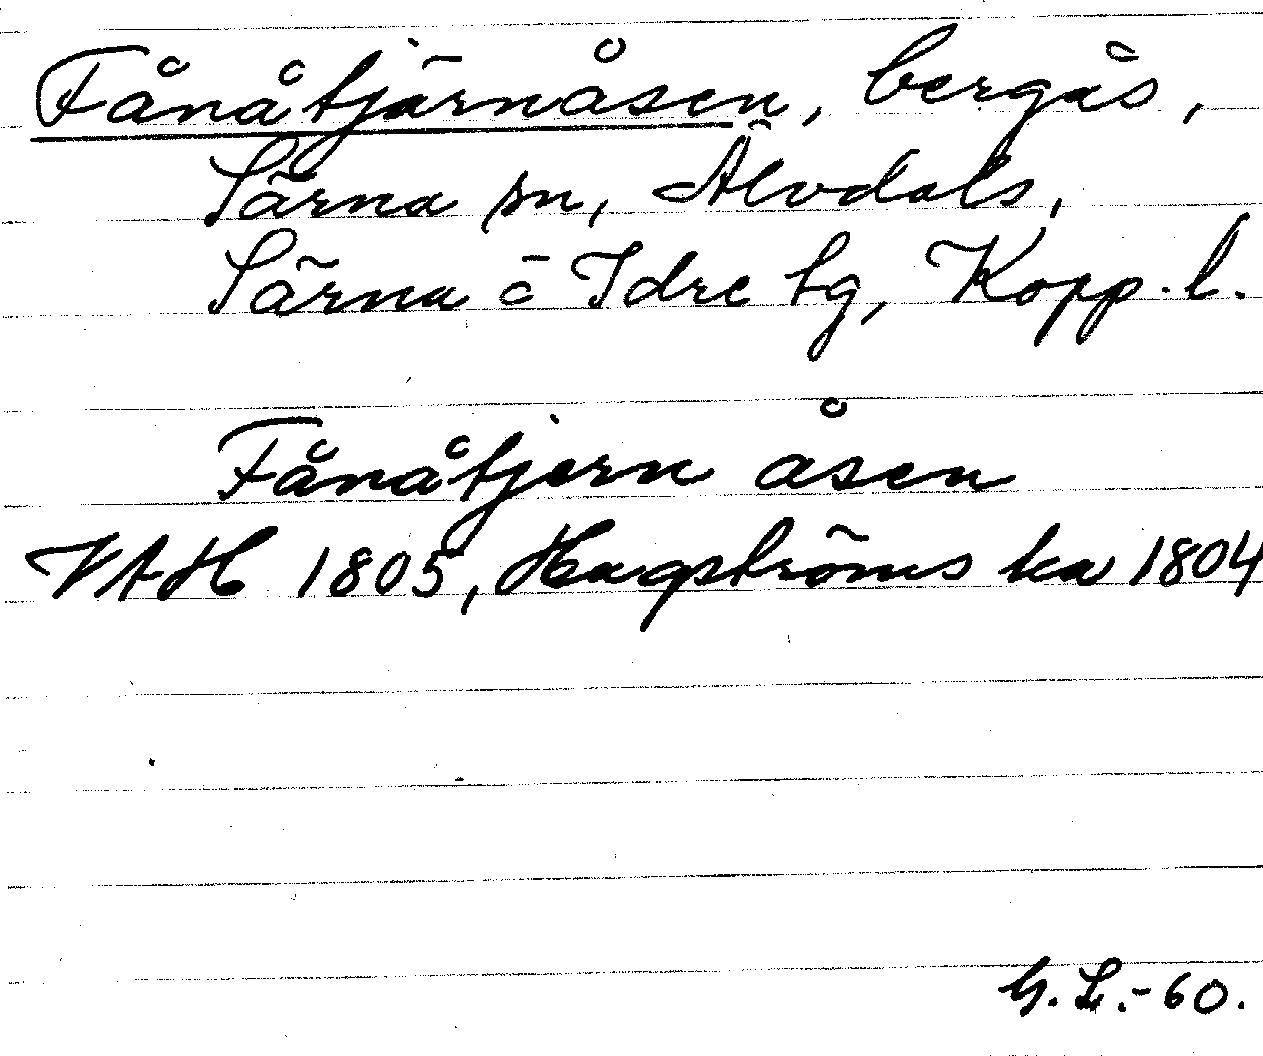 Fånåtjärnåsen, bergås,
Särna sn, Älvdals,
Särna o Idre tg, Kopp. l.
Fånåtjern åsen
VAH 1805, Hagströms ka 1804
G. L. -60.